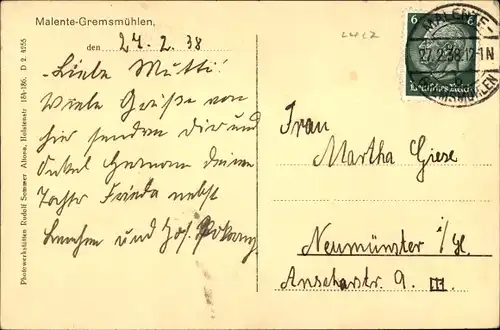 Malente-Gremsmühlen,
den 27. 2. 38
Liebe Mutti!
Viele Grüße von
hier senden dir und
Onkel Hermann deine
Tochter Frieda nebst
und
Frau
Martha Giese
Neumünster i/H.
Anscharstr. 9. III
6 6
Deutsches Reich
MALENTE-
27.2.38.12-1N
GREMSMÜHLEN
Photowerkstätten Rudolf Sommer Altona, Holstenstr. 184-186. D 2. 4255